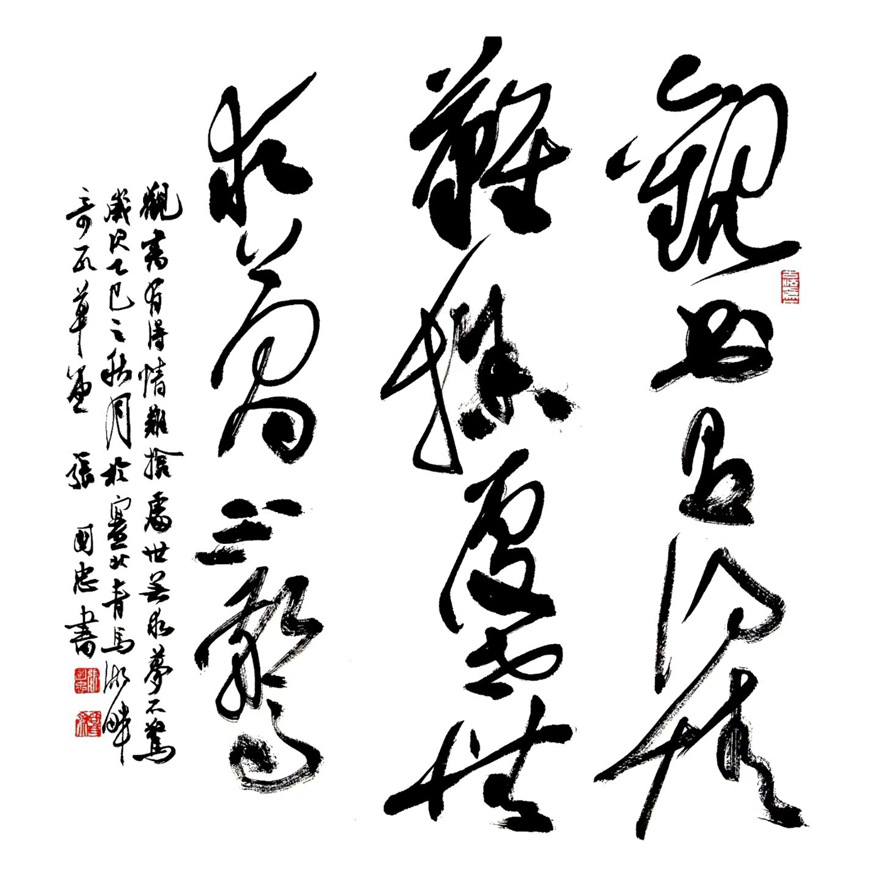 觀書有得情
難捨處世無
求夢不驚
觀書有得情難捨處世無求夢不驚
歲次乙巳之秋月於北青馬湖畔
奇石草 張國忠書